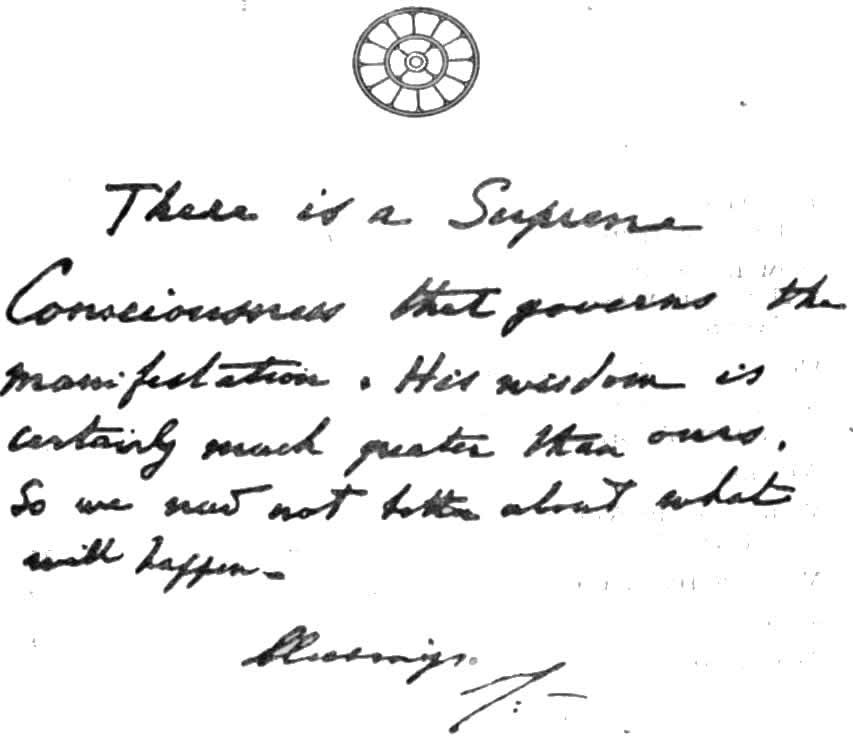 There is a Supreme
Consciousness that governs the
manifestation. His wisdom is
certainly much greater than ours.
So we need not bother about what
will happen.
Blessings.